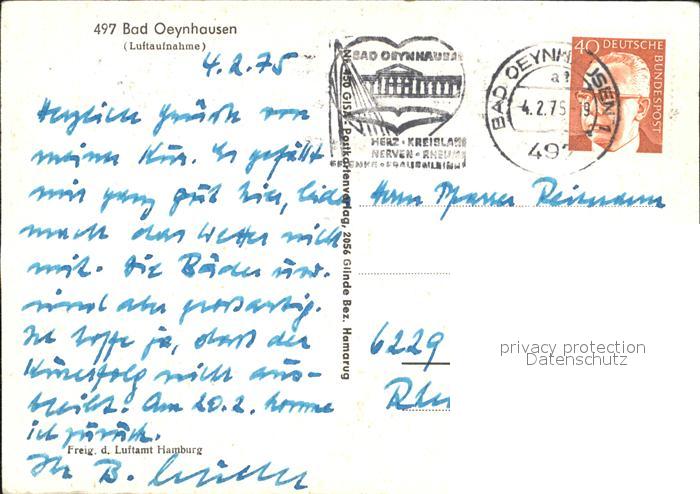 497 Bad Oeynhausen
(Luftaufnahme)
4.2.75
Herzliche Grüße von
meiner Kur. Es gefällt
mir ganz gut hier, leider
macht das Wetter nicht
mit. Die Bäder
sind aber großartig.
Ich hoffe ja, daß der
Kurerfolg nicht aus-
bleibt. Am 20.2. komme
ich zurück.
Ihr B.
Freig. d. Luftamt Hamburg
Nr. 450 Postkartenverlag, 2056 Glinde Bez. Hamburg
BAD OEYNHAUSEN
HERZ · KREISLAUF
NERVEN · RHEUMA
FRAUENLEIDEN
BAD OEYNHAUSEN 1
4.2.75-19
497
40 DEUTSCHE
BUNDESPOST
Herrn Pfarrer Reitmann
6229
privacy protection
Datenschutz